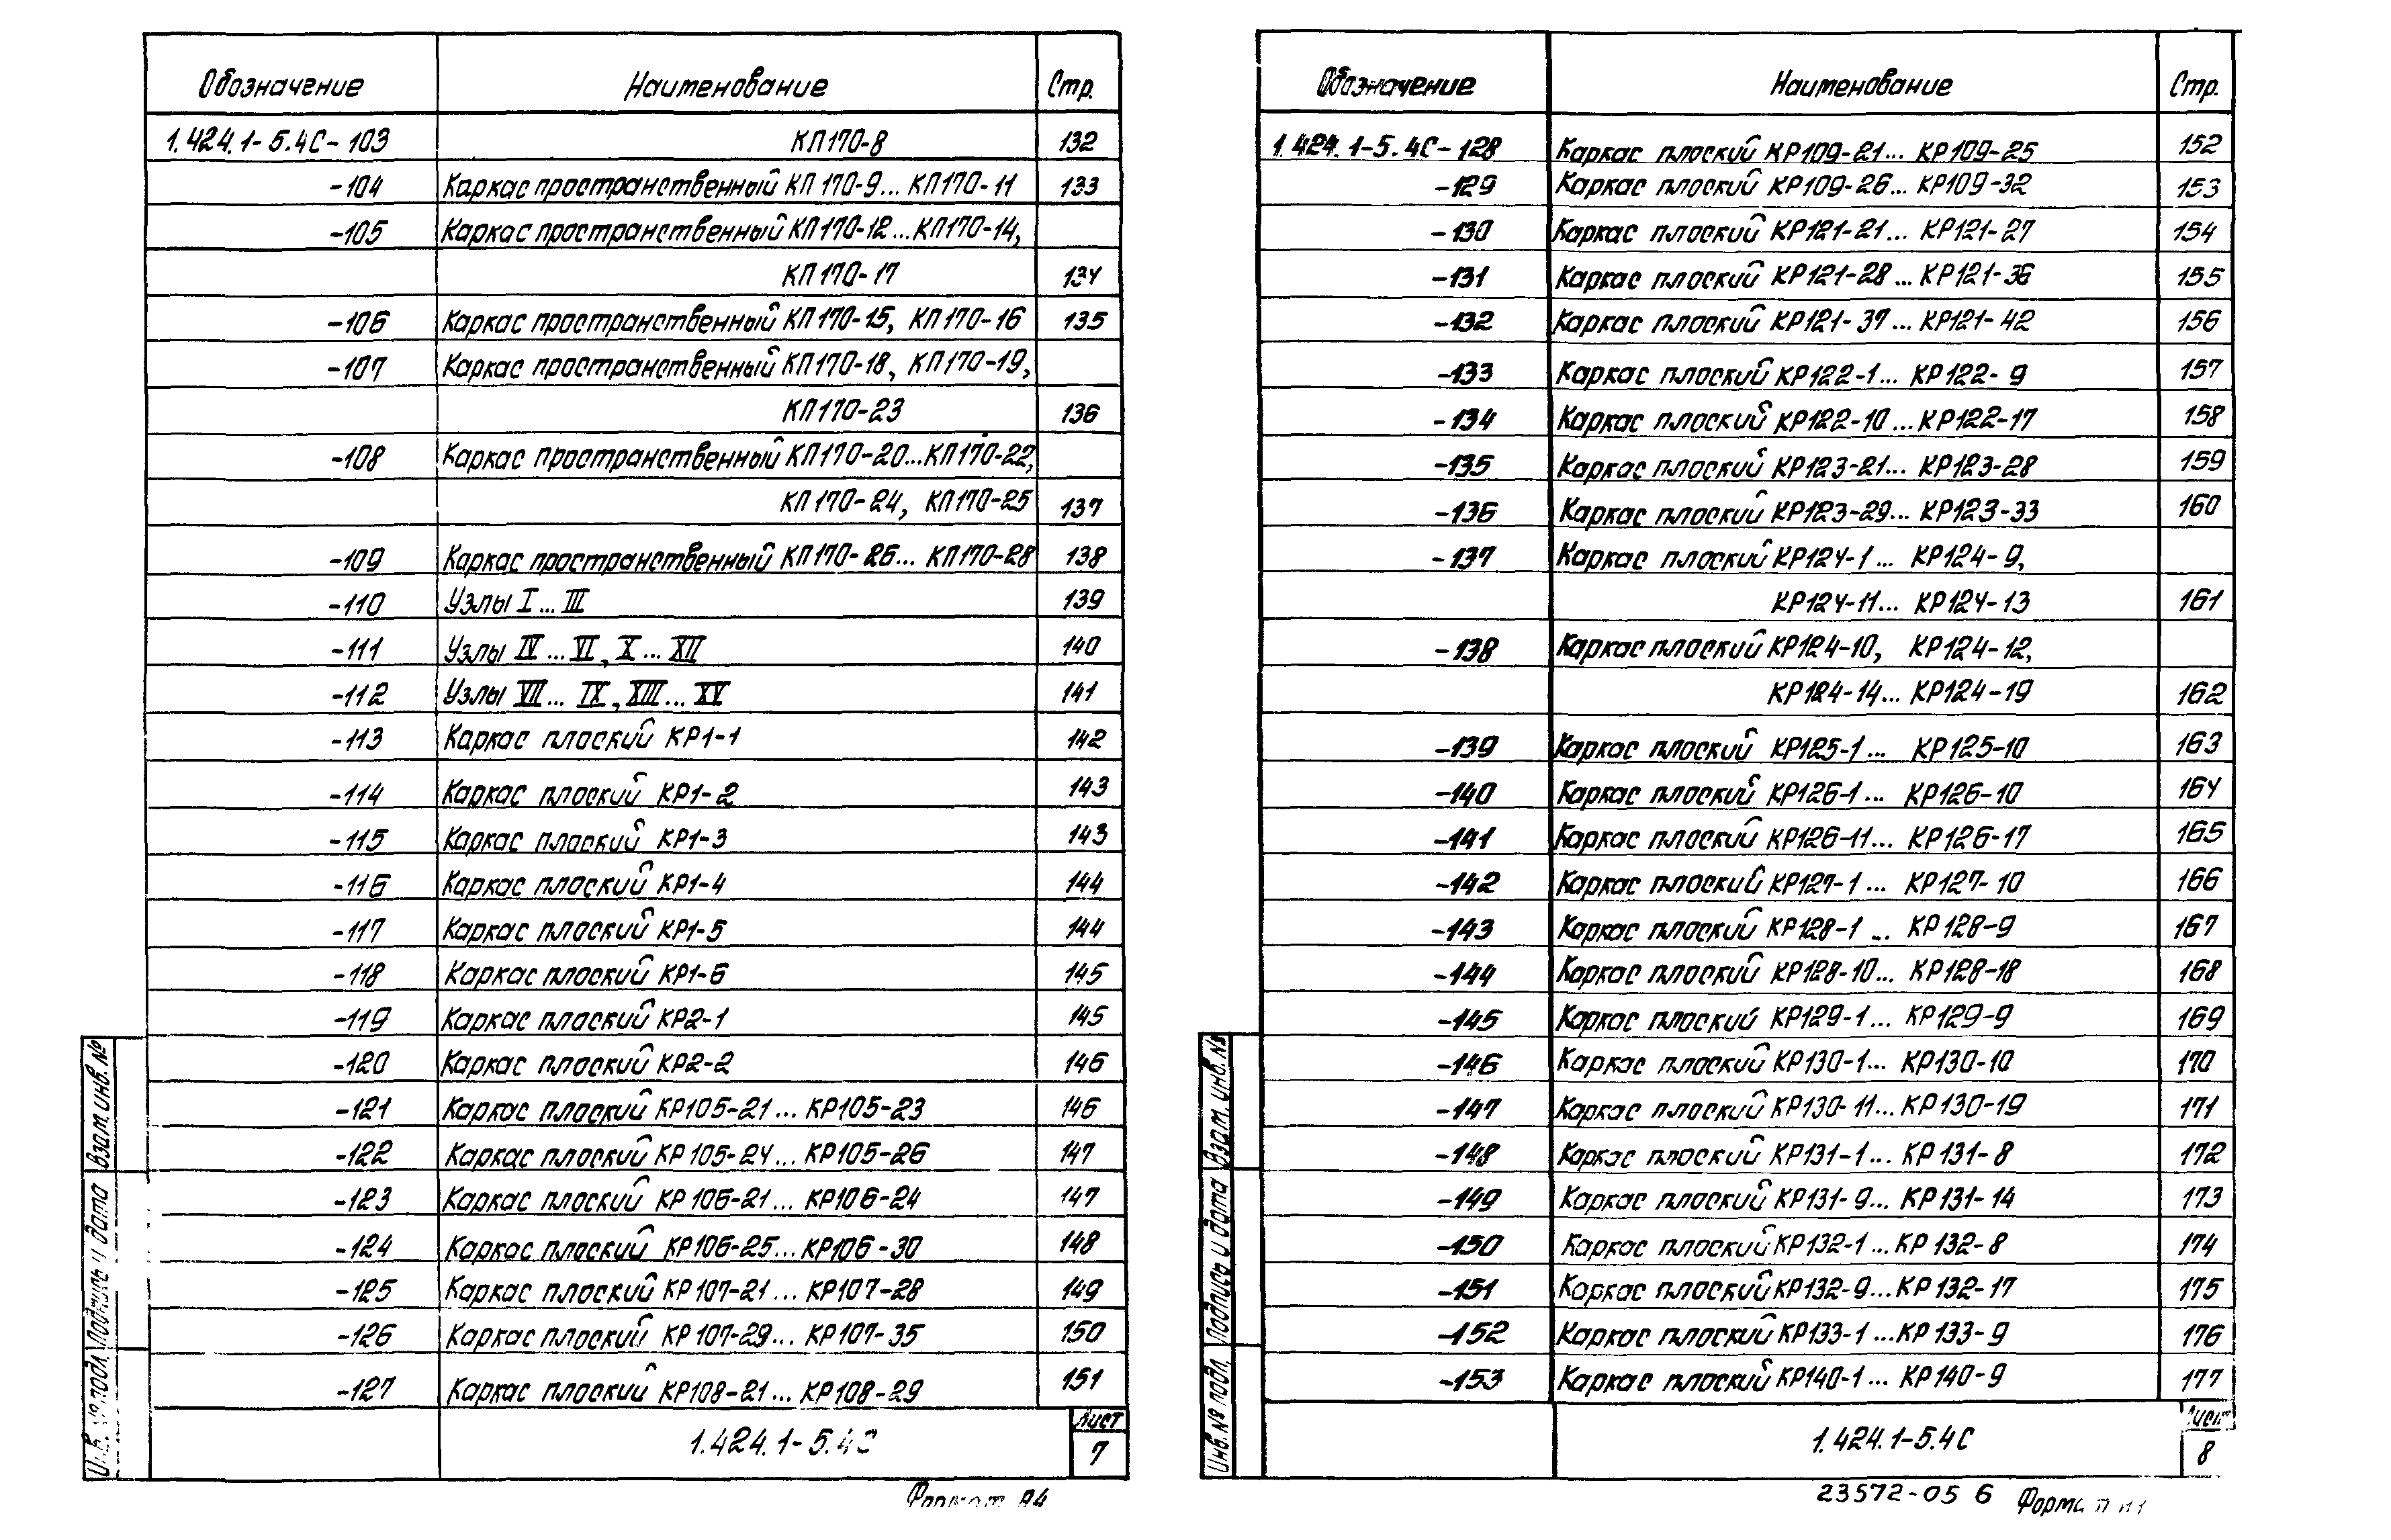 Обозначение Наименование Стр.
1.424.1-5.4С-103 КП170-8 132
-104 Каркас пространственный КП170-9... КП170-11 133
-105 Каркас пространственный КП170-12...КП170-14,
КП170-17 134
-106 Каркас пространственный КП170-15, КП170-16 135
-107 Каркас пространственный КП170-18, КП170-19,
КП170-23 136
-108 Каркас пространственный КП170-20...КП170-22,
КП170-24, КП170-25 137
-109 Каркас пространственный КП170-26... КП170-28 138
-110 Узлы I...III 139
-111 Узлы IV...VI, X...XII 140
-112 Узлы VII...IX, XIII...XV 141
-113 Каркас плоский КР1-1 142
-114 Каркас плоский КР1-2 143
-115 Каркас плоский КР1-3 143
-116 Каркас плоский КР1-4 144
-117 Каркас плоский КР1-5 144
-118 Каркас плоский КР1-6 145
-119 Каркас плоский КР2-1 145
-120 Каркас плоский КР2-2 146
-121 Каркас плоский КР105-21... КР105-23 146
-122 Каркас плоский КР105-24... КР105-26 147
-123 Каркас плоский КР106-21... КР106-24 147
-124 Каркас плоский КР106-25...КР106-30 148
-125 Каркас плоский КР107-21... КР107-28 149
-126 Каркас плоский КР107-29... КР107-35 150
-127 Каркас плоский КР108-21... КР108-29 151
1.424.1-5.4С
Лист
7
Взам. инв. №
Подпись и дата
Инв. № подл.
Формат А4
Обозначение Наименование Стр.
1.424.1-5.4С-128 Каркас плоский КР109-21... КР109-25 152
-129 Каркас плоский КР109-26... КР109-32 153
-130 Каркас плоский КР121-21... КР121-27 154
-131 Каркас плоский КР121-28... КР121-36 155
-132 Каркас плоский КР121-37... КР121-42 156
-133 Каркас плоский КР122-1... КР122-9 157
-134 Каркас плоский КР122-10...КР122-17 158
-135 Каркас плоский КР123-21... КР123-28 159
-136 Каркас плоский КР123-29... КР123-33 160
-137 Каркас плоский КР124-1... КР124-9,
КР124-11... КР124-13 161
-138 Каркас плоский КР124-10, КР124-12,
КР124-14... КР124-19 162
-139 Каркас плоский КР125-1... КР125-10 163
-140 Каркас плоский КР126-1... КР126-10 164
-141 Каркас плоский КР126-11... КР126-17 165
-142 Каркас плоский КР127-1... КР127-10 166
-143 Каркас плоский КР128-1... КР128-9 167
-144 Каркас плоский КР128-10... КР128-18 168
-145 Каркас плоский КР129-1... КР129-9 169
-146 Каркас плоский КР130-1... КР130-10 170
-147 Каркас плоский КР130-11... КР130-19 171
-148 Каркас плоский КР131-1... КР131-8 172
-149 Каркас плоский КР131-9... КР131-14 173
-150 Каркас плоский КР132-1...КР132-8 174
-151 Каркас плоский КР132-9...КР132-17 175
-152 Каркас плоский КР133-1...КР133-9 176
-153 Каркас плоский КР140-1... КР140-9 177
1.424.1-5.4С
Лист
8
Взам. инв. №
Подпись и дата
Инв. № подл.
23572-05 6